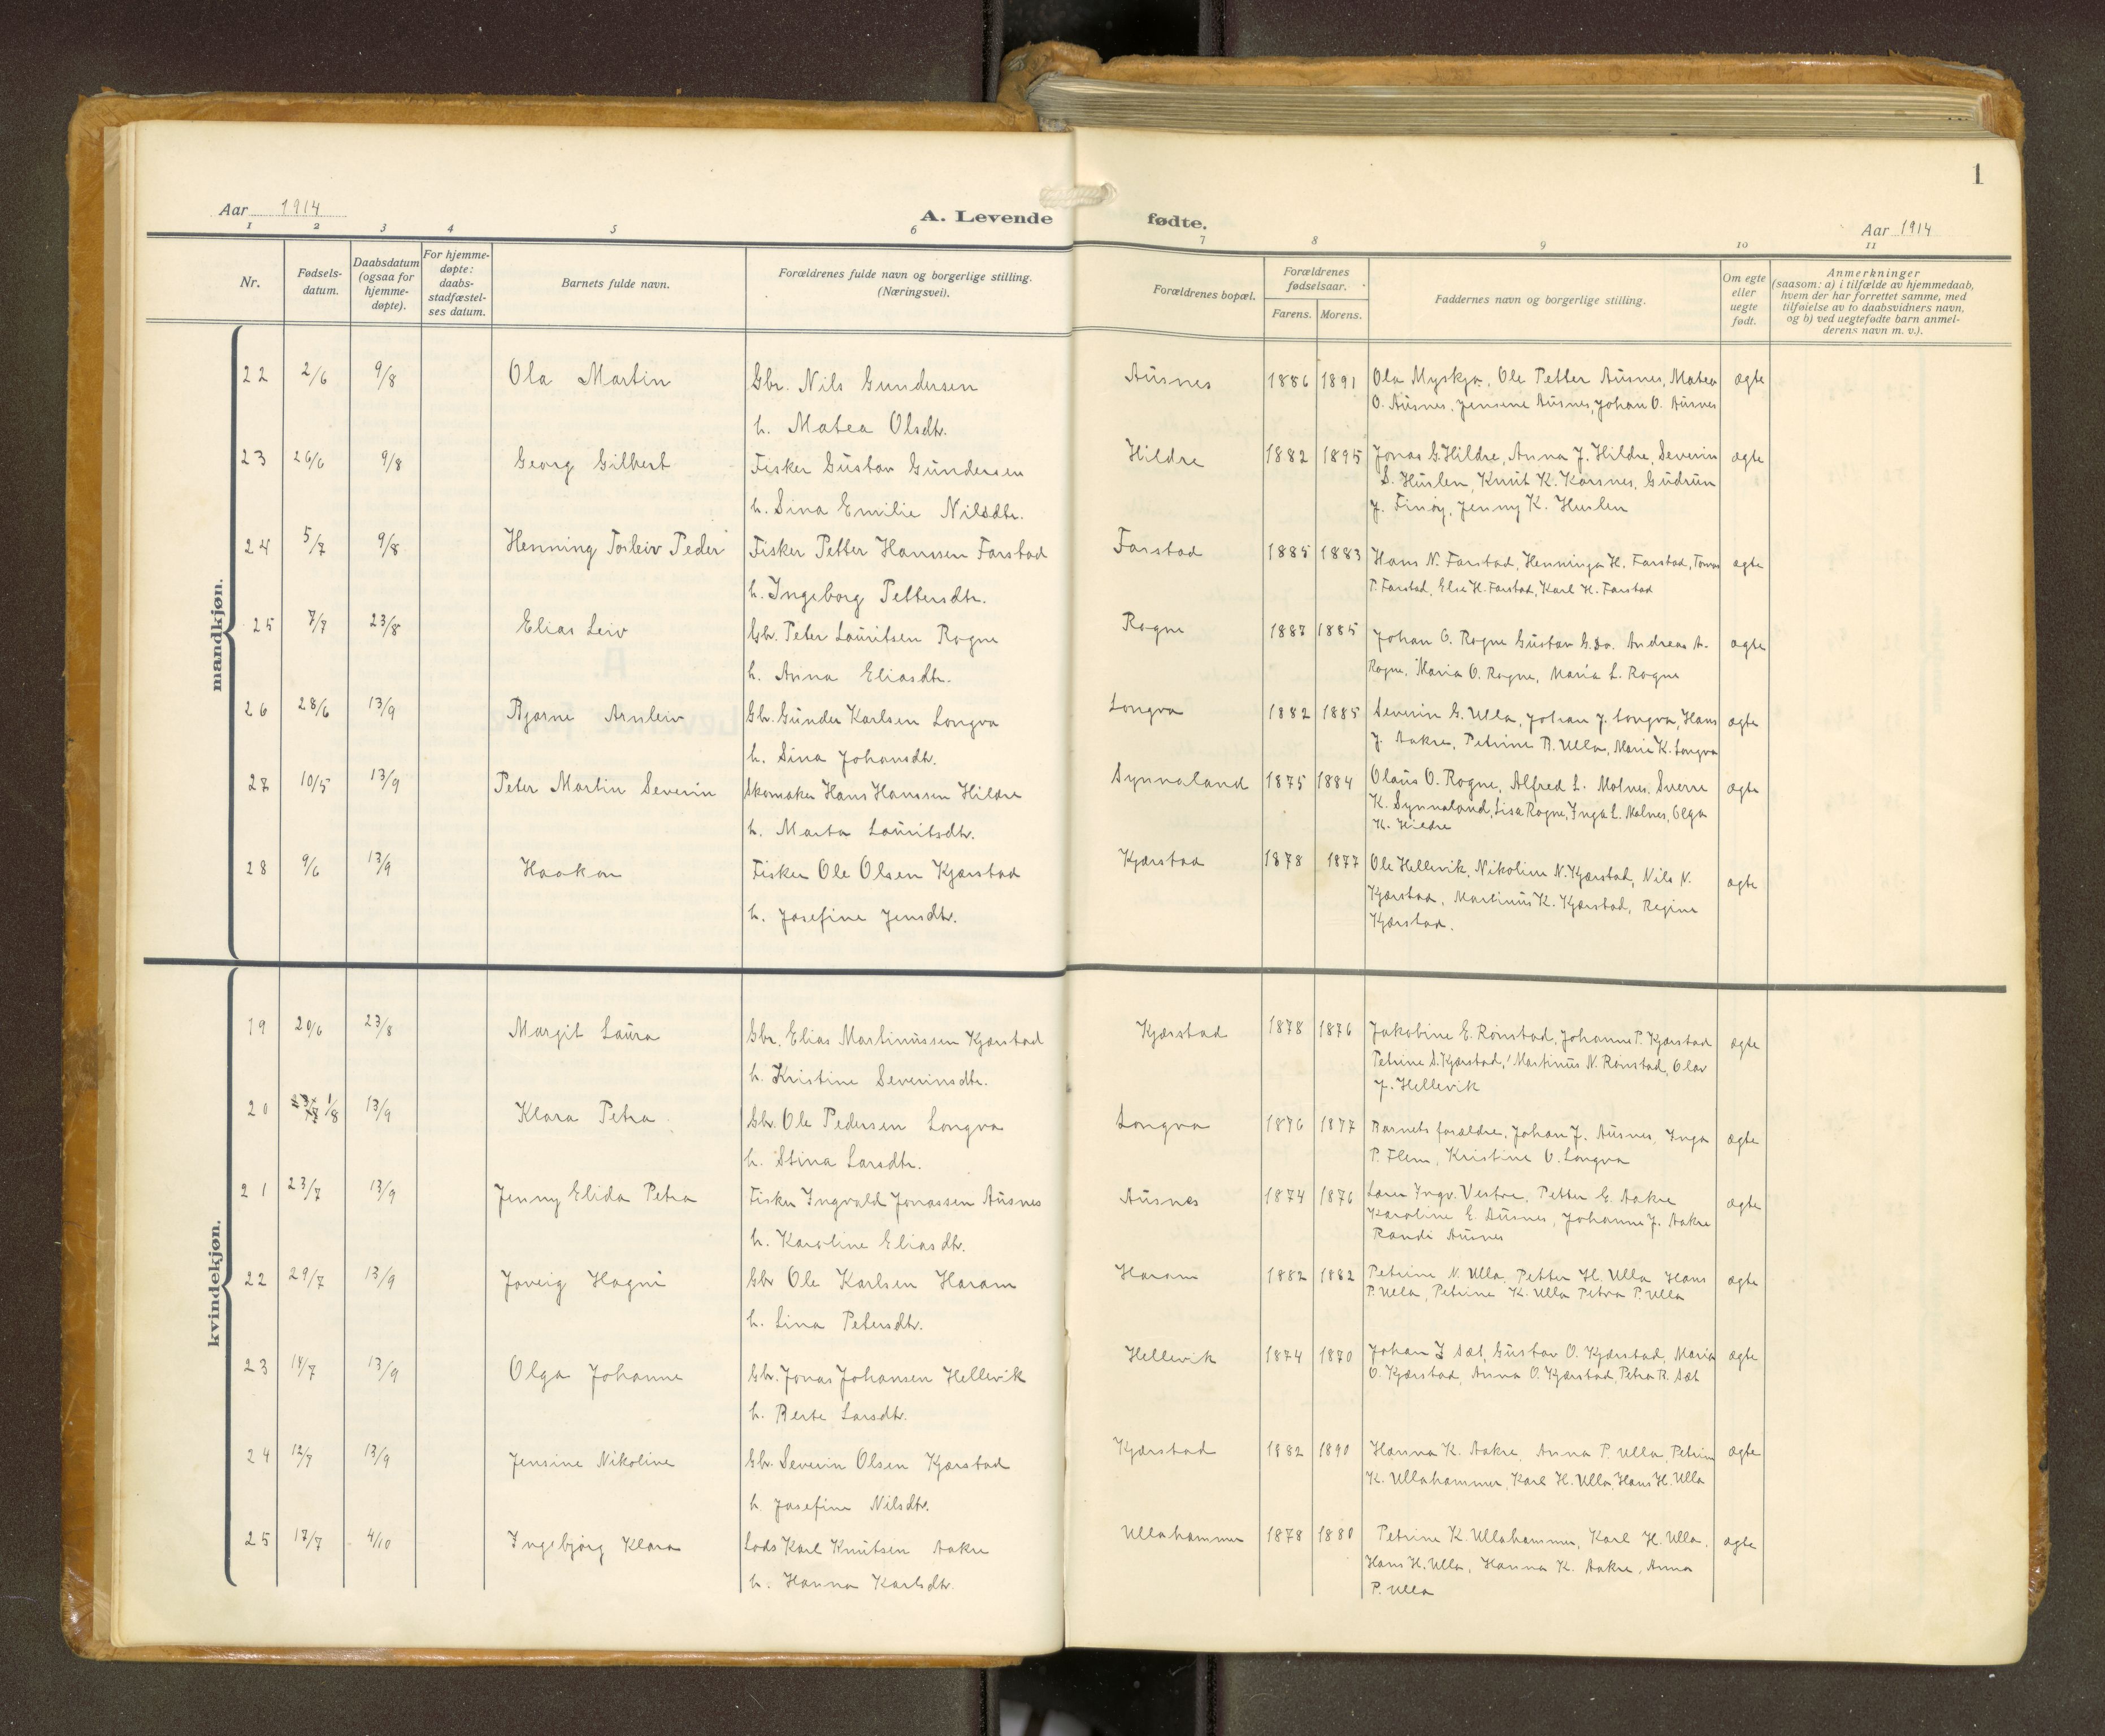 1
Aar 1914
A. Levende fødte.
Aar 1914
1 2 3 4 5 6 7 8 9 10 11
Nr.
Fødsels-
datum.
Daabsdatum
(ogsaa for
hjemme-
døpte).
For hjemme-
døpte:
daabs-
stadfæstel-
ses datum.
Barnets fulde navn.
Forældrenes fulde navn og borgerlige stilling.
(Næringsvei).
Forældrenes bopæl.
Forældrenes
fødselsaar.
Farens. Morens.
Faddernes navn og borgerlige stilling.
Om egte
eller
uegte
født.
Anmerkninger
(saasom: a) i tilfælde av hjemmedaab,
hvem der har forrettet samme, med
tilføielse av to daabsvidners navn,
og b) ved uegtefødte barn anmel-
derens navn m. v.).
mandkjøn.
22 2/6 9/8 Ola Martin Gbr. Nils Gundersen Ausnes 1886 1891 Ola Myskja, Ole Petter Ausnes, Matea ægte
h. Matea Olsdtr. O. Ausnes, Jensine Ausnes, Johan O. Ausnes
23 26/6 9/8 Georg Gilbert Fisker Gustav Gundersen Hildre 1882 1895 Jonas G. Hildre, Anna J. Hildre, Severin ægte
S. Huslen, Knut K. Karsnes, Gudrun
h. Sina Emilie Nilsdtr. J. Finøy, Jenny K. Huslen
24 5/7 9/8 Henning Torleiv Peder Fisker Petter Hanssen Farstad Farstad 1885 1883 Hans N. Farstad, Henninga H. Farstad, Tomas ægte
h. Ingeborg Pettersdtr. P. Farstad, Else H. Farstad, Karl H. Farstad
25 7/7 23/8 Elias Leiv Gbr. Peter Lauritsen Rogne Rogne 1887 1885 Johan O. Rogne Gustav G. Do. Andreas A. ægte
h. Anna Eliasdtr. Rogne, Maria O. Rogne, Maria L. Rogne
26 28/6 13/9 Bjarne Arnleiv Gbr. Gunder Karlsen Longva Longva 1882 1885 Severin G. Ulla, Johan J. Longva, Hans ægte
h. Sina Johansdtr. J. Aakre, Petrine R. Ulla, Marie K. Longva
27 10/5 13/9 Peter Martin Severin Skomaker Hans Hanssen Hildre Synnaland 1875 1884 Olaus O. Rogne, Alfred L. Molnes, Sverre ægte
K. Synnaland, Lisa Rogne, Inga L. Molnes, Olga
h. Marta Lauritsdtr. K. Hildre
28 9/6 13/9 Haakon Fisker Ole Olsen Kjærstad Kjærstad 1878 1877 Ole Hellevik, Nikoline N. Kjærstad, Nils N. ægte
Kjærstad, Martinus K. Kjærstad, Regine
h. Josefine Jensdtr. Kjærstad.
kvindekjøn.
19 20/6 23/8 Margit Laura Gbr. Elias Martinussen Kjærstad Kjærstad 1878 1876 Jakobine E. Rønstad, Johanne P. Kjærstad ægte
Petrine S. Kjærstad, Martinus N. Rønstad, Olav
h. Kristine Severinsdtr. J. Hellevik
20 1/8 13/9 Klara Petra Gbr. Ole Pedersen Longva Longva 1876 1877 Barnets forældre, Johan J. Ausnes, Inga ægte
h. Stina Larsdtr. P. Flem, Kristine O. Longva
21 23/7 13/9 Jenny Elida Petra Fisker Ingvald Jonassen Ausnes Ausnes 1874 1876 Lærer Ingv. Vestre, Petter E. Aakre ægte
Karoline E. Ausnes, Johanne J. Aakre
h. Karoline Eliasdtr. Randi Ausnes
22 29/7 13/9 Hagni Gbr Ole Karlsen Haram Haram 1882 1882 Petrine N. Ulla, Petter H. Ulla Hans ægte
h. Lina Petersdtr. P. Ulla, Petrine K. Ulla Petra P. Ulla
23 14/7 13/9 Olga Johanne Gbr. Jonas Johansen Hellevik Hellevik 1874 1870 Johan J Sæt, Gustav O. Kjærstad, Maria ægte
h. Berte Larsdtr. O. Kjærstad, Anna O. Kjærstad, Petra R. Sæt
24 13/9 Jensine Nikoline Gbr. Severin Olsen Kjærstad Kjærstad 1882 1890 Hanna K. Aakre, Anna P. Ulla, Petrine ægte
h. Josefine Nilsdtr. K. Ullahammer, Karl H. Ulla, Hans H. Ulla
25 17/7 4/10 Ingebjørg Klara Lods Karl Knutsen Aakre Ullahammer 1878 1880 Petrine K. Ullahammer, Karl H. Ulla, ægte
Hans H. Ulla, Hanna K. Aakre, Anna
h. Hanna Karlsdtr. P. Ulla